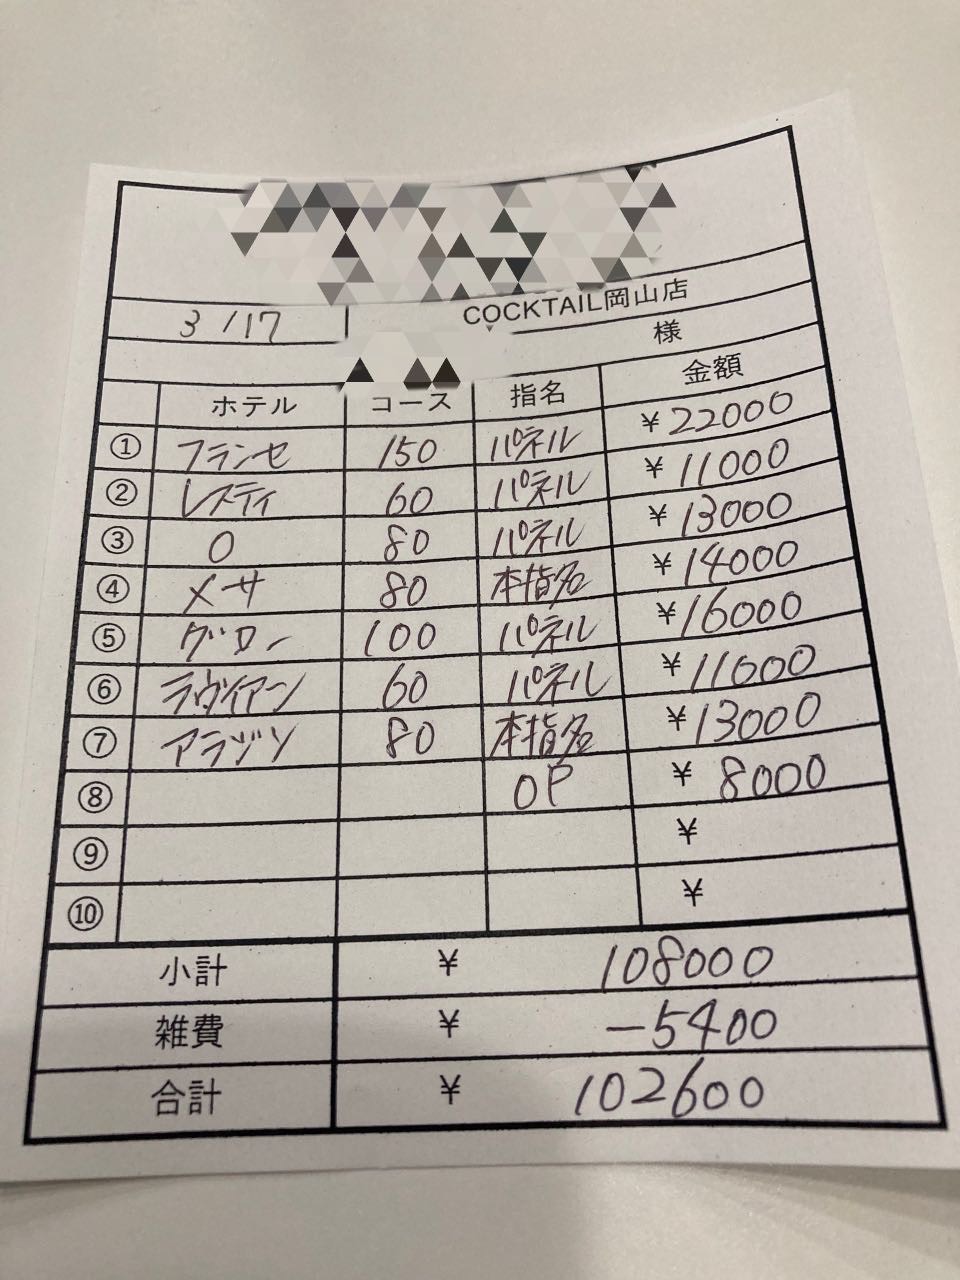 COCKTAIL岡山店
3/17
様
ホテル コース 指名 金額
① フランセ 150 パネル ¥22000
② レスティ 60 パネル ¥11000
③ O 80 パネル ¥13000
④ メサ 80 本指名 ¥14000
⑤ グロー 100 パネル ¥16000
⑥ ラヴィアーン 60 パネル ¥11000
⑦ アラジソ 80 本指名 ¥13000
⑧ OP ¥8000
⑨ ¥
⑩ ¥
小計 ¥ 108000
雑費 ¥ -5400
合計 ¥ 102600